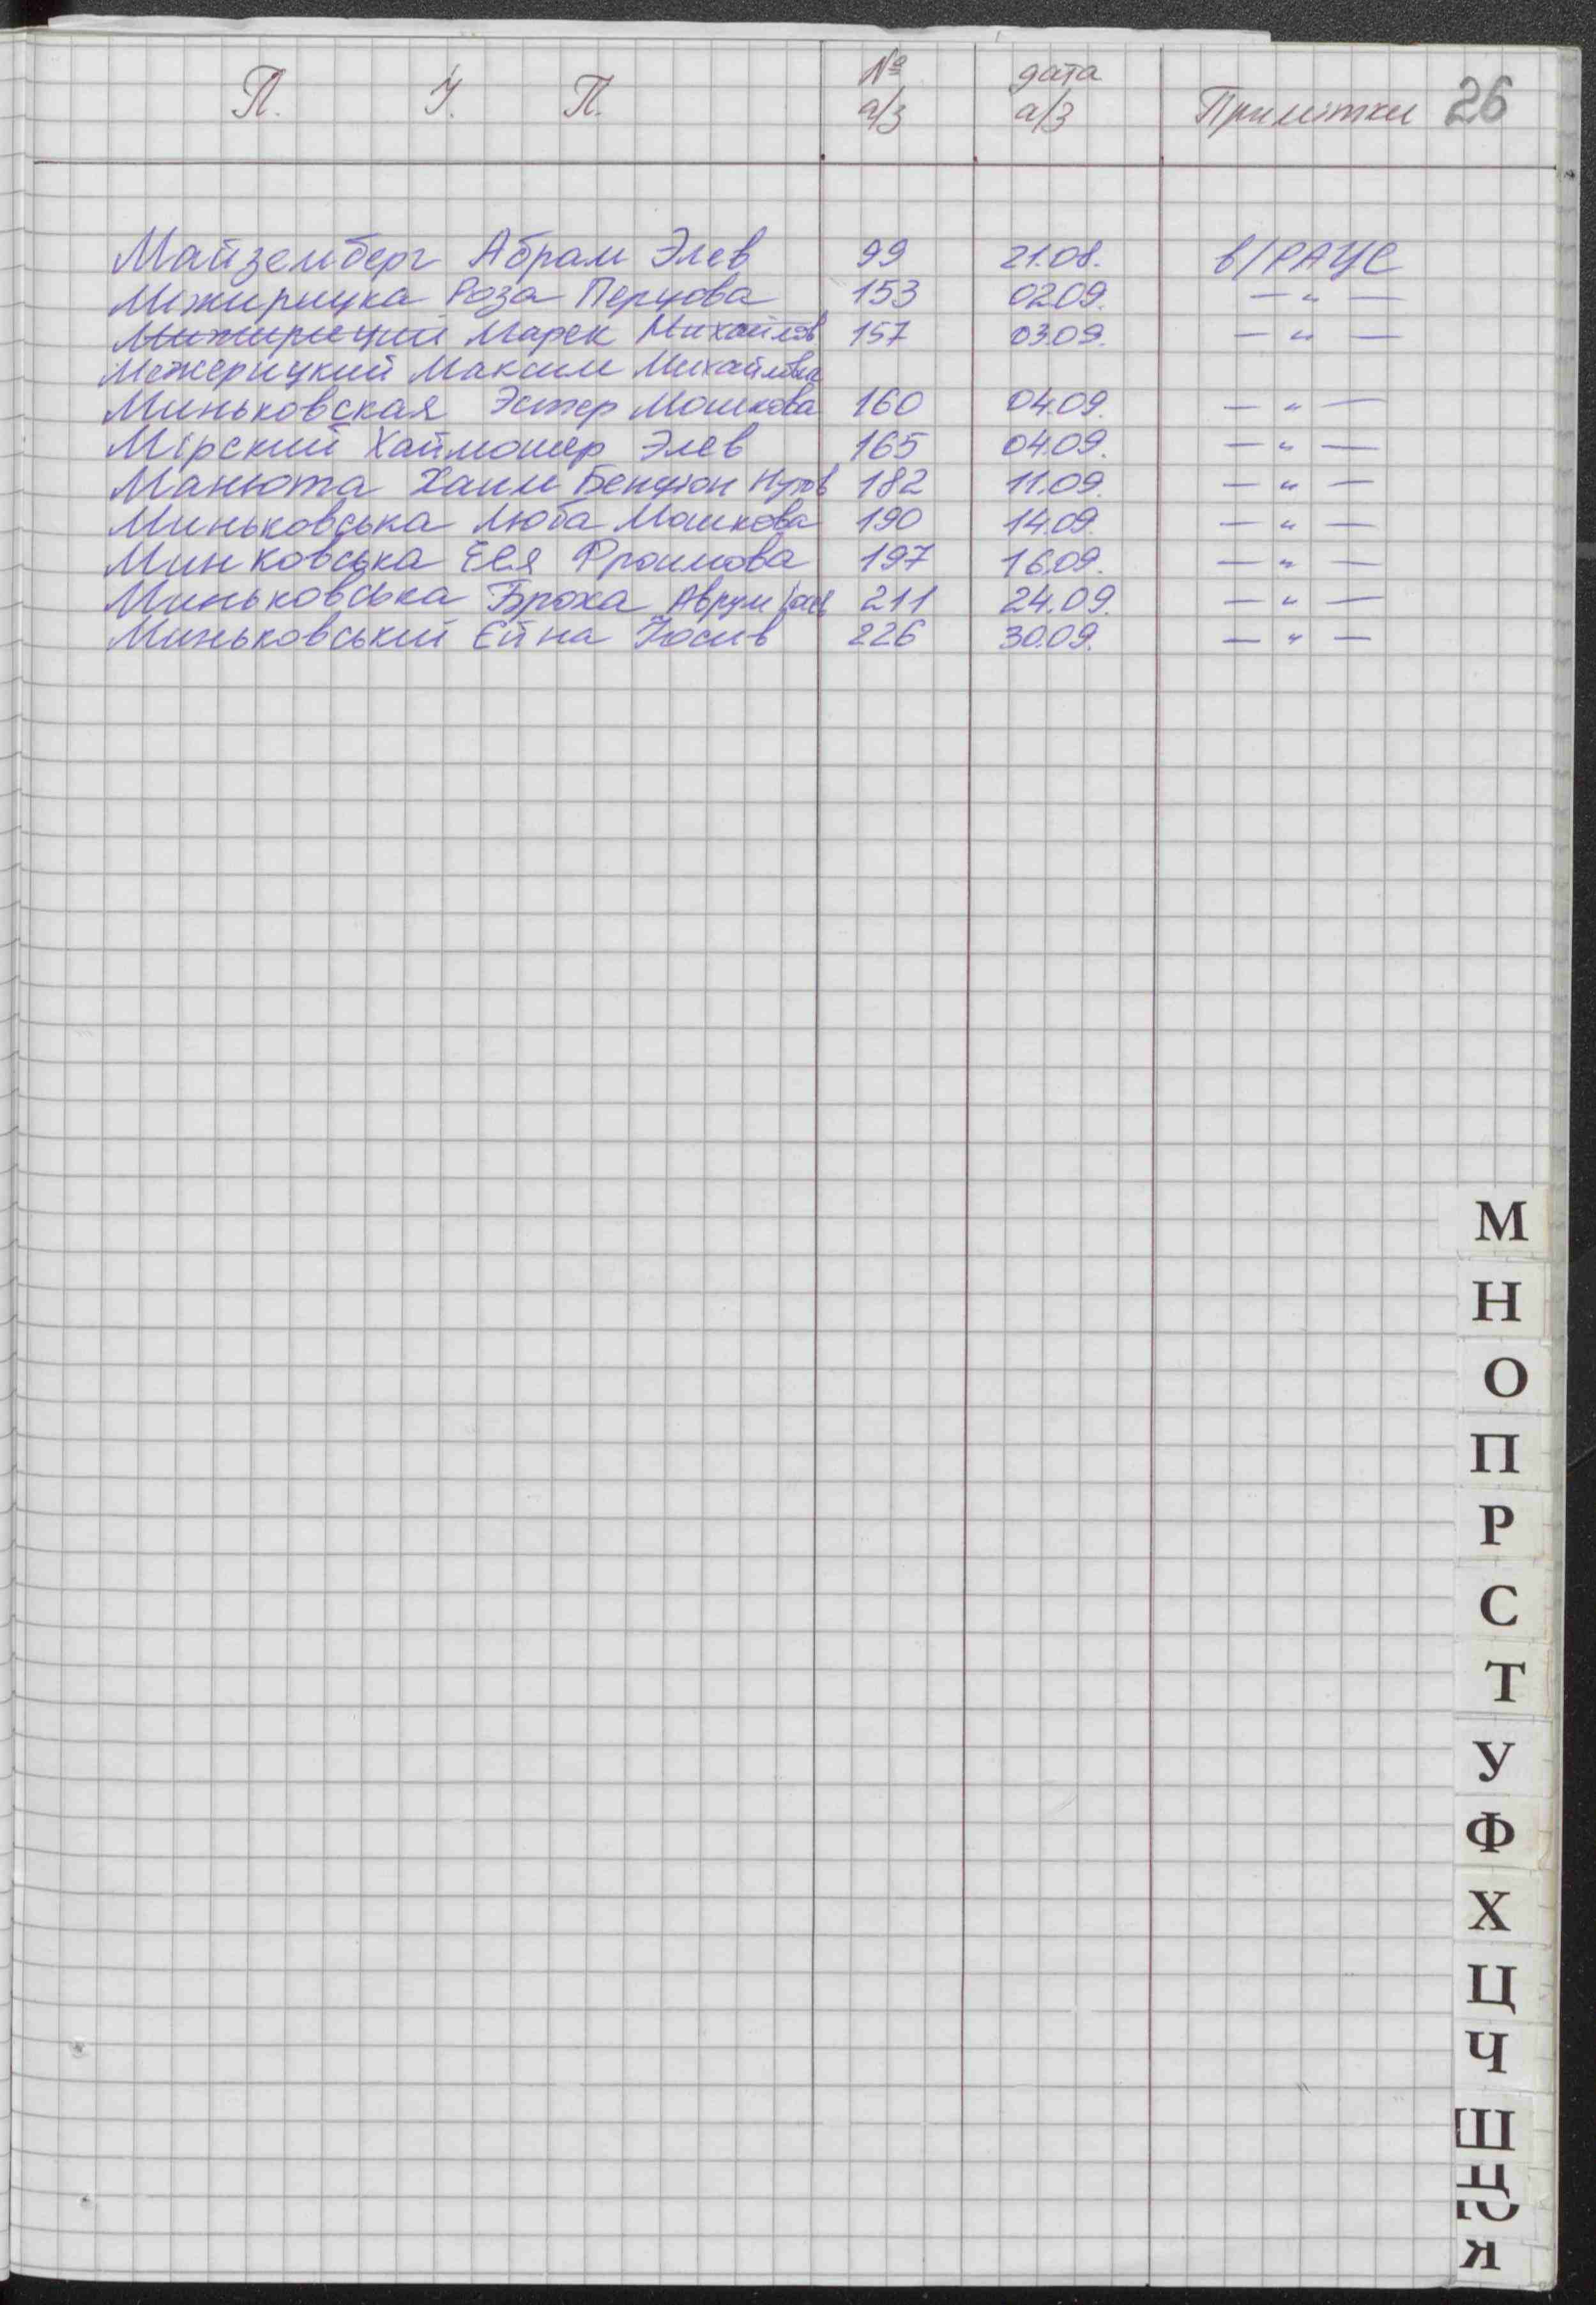 П. І. П. № а/з дата а/з Примітки 26
Майземберг Абрам Элев 99 21.08. в/РАЦС
Міжирицка Роза Перцова 153 02.09. — " —
Мижирицкий Марек Михайлов 157 03.09. — " —
Межерицкий Максим Михайлович
Миньковская Эстер Мошкова 160 04.09. — " —
Мірский Хаймошер Элев 165 04.09. — " —
Манюта Хаим Бенцион Нутов 182 11.09. — " —
Миньковська Люба Мошкова 190 14.09. — " —
Минковська Ееля Фроимова 197 16.09. — " —
Миньковська Броха Аврум 211 24.09. — " —
Миньковський Ейна Йосив 226 30.09. — " —
М
Н
О
П
Р
С
Т
У
Ф
Х
Ц
Ч
Ш
Я